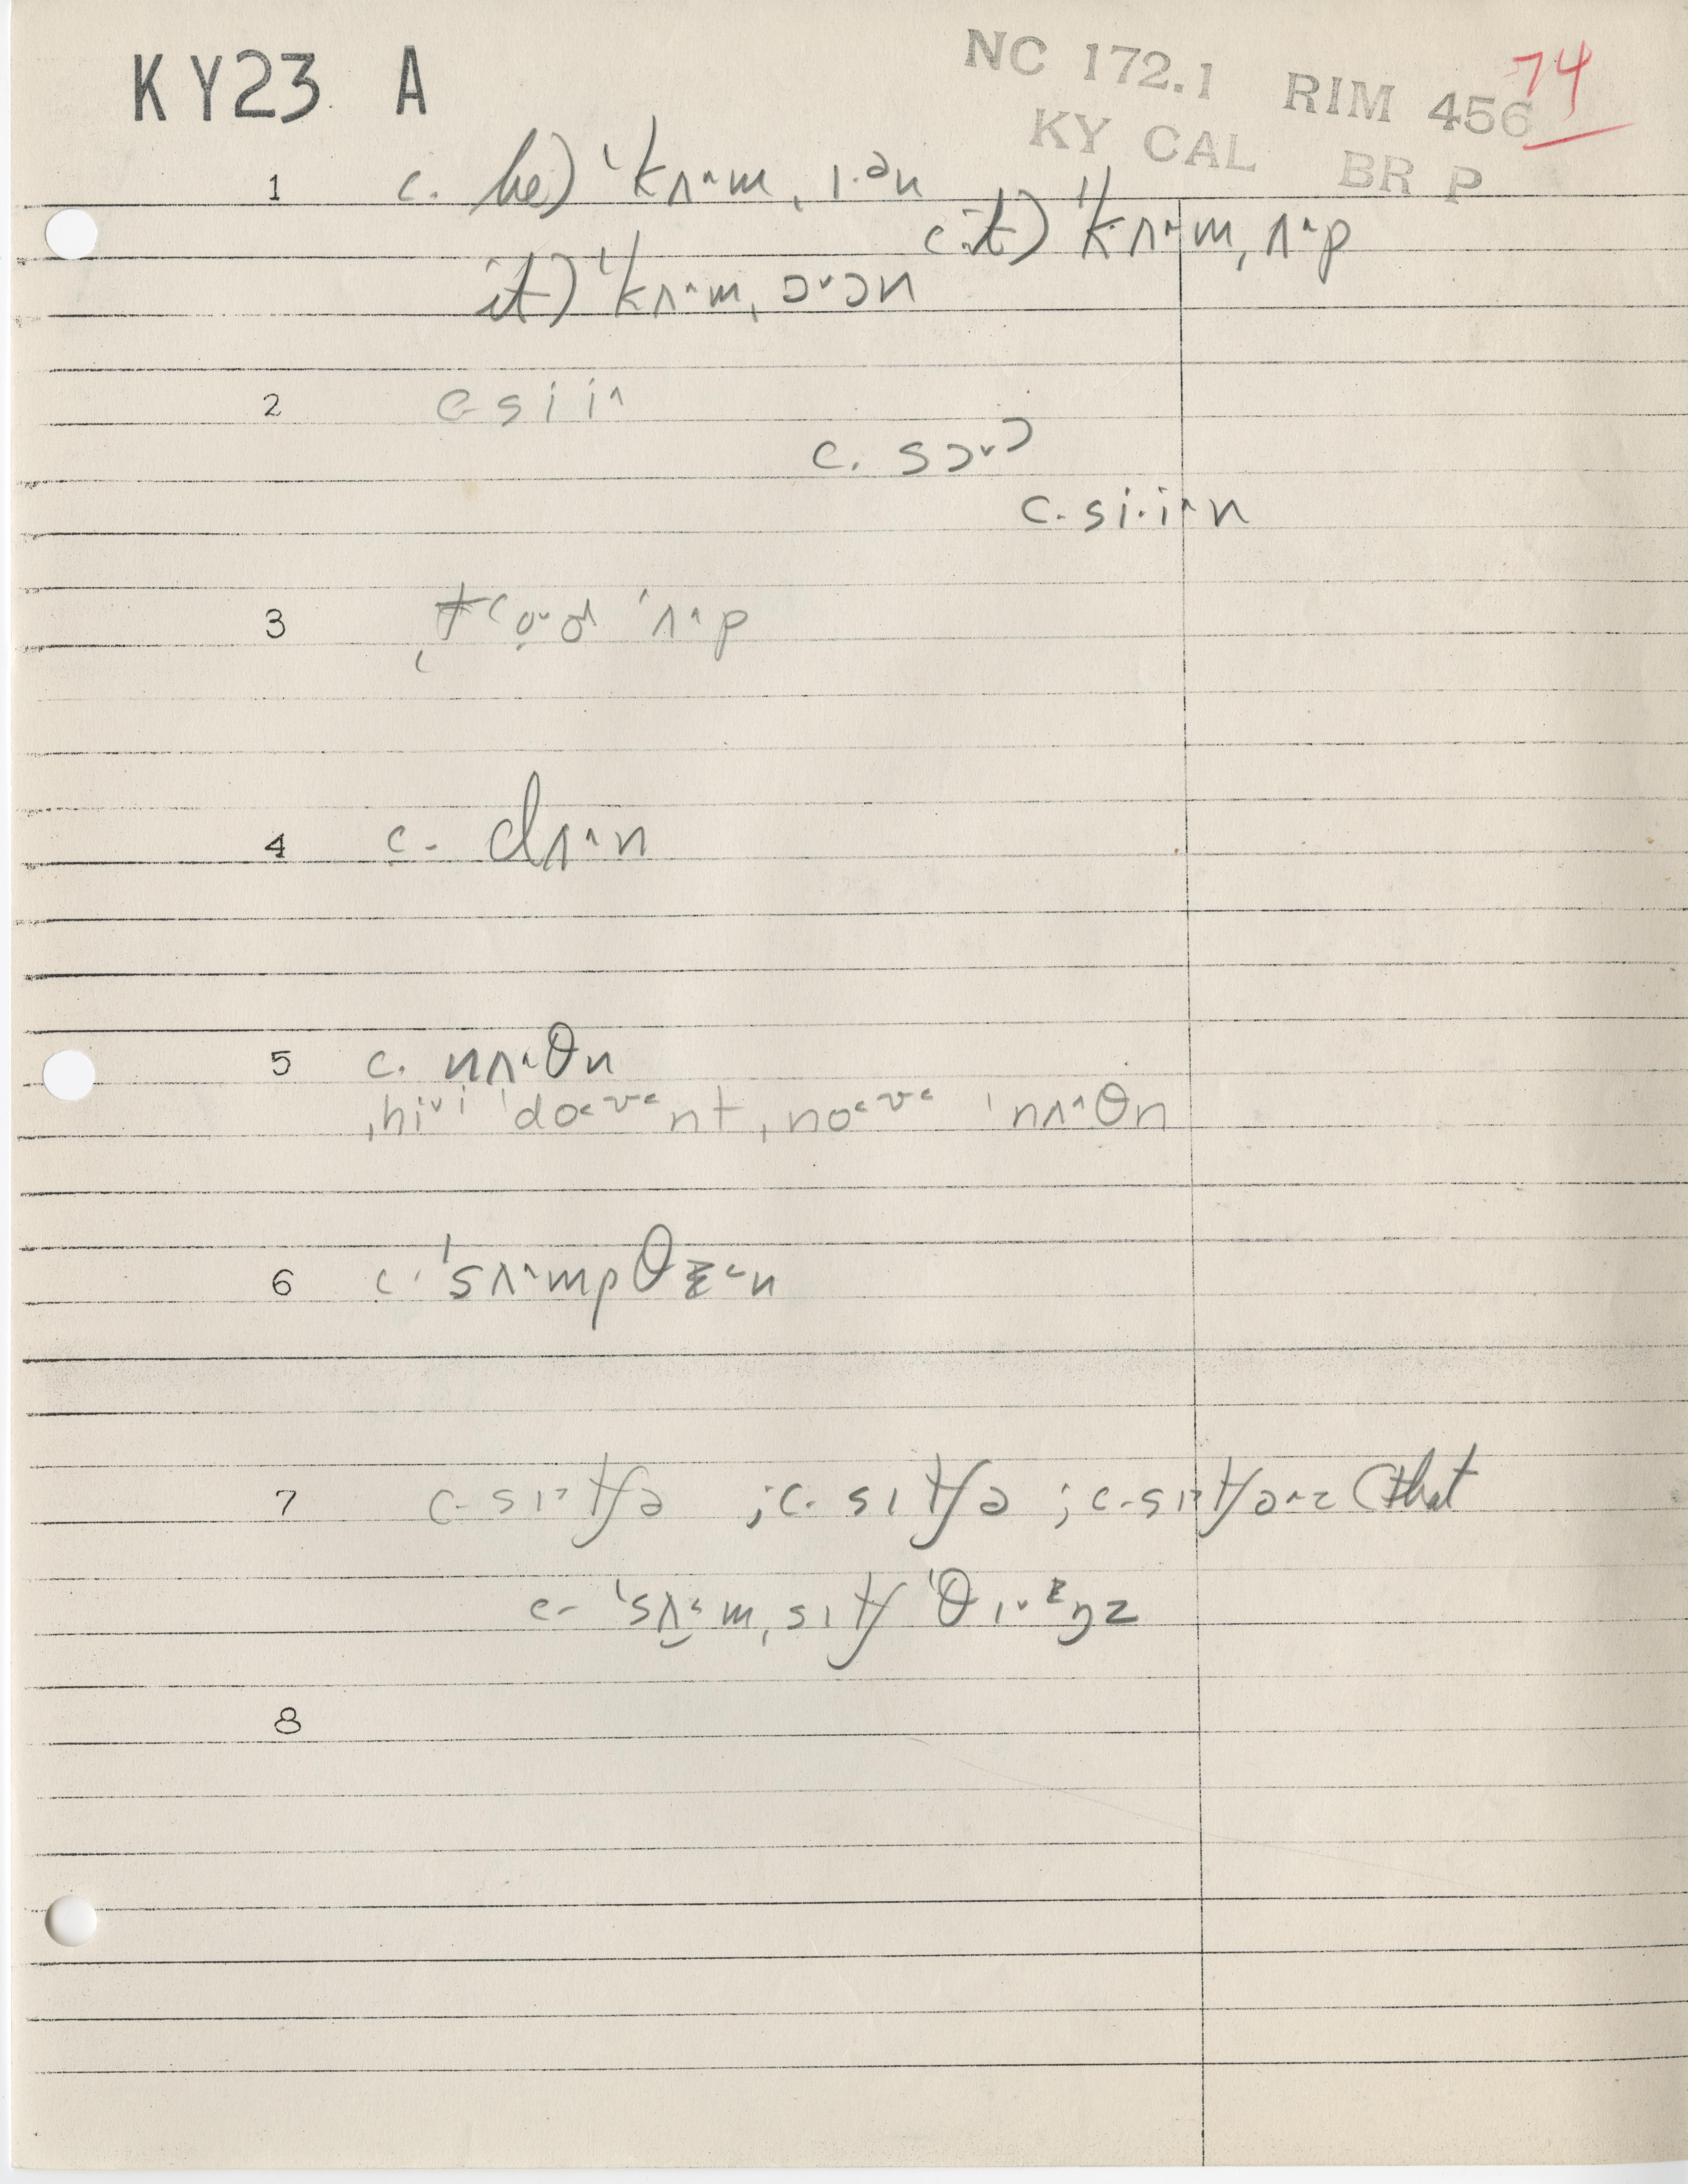 KY23 A
NC 172.1 RIM 456 74
KY CAL BR P
1 c. he) ˈkʌ·^m, ɪ·ᵊn
c. it) ˈkʌ·^m, ʌ·^p
it) ˈkʌ·^m, ɔ·ᵛɔn
2 c si i^
c. sɔ·ᵛɔ
c. si·i^n
3 ˈʌ·^p
4 c. dʌ·^n
5 c. nʌ·^θn
ˌhiᵛi ˈdo nt ˌno ˈnʌ·^θn
6 c. ˈsʌ·^mpθ n
7 c. sɪ·tʃə ; c. sɪtʃə ; c. sɪ tʃə^z (that
c. ˈsʌ·m, sɪtʃ ˈθɪ·ᵛ ŋz
8